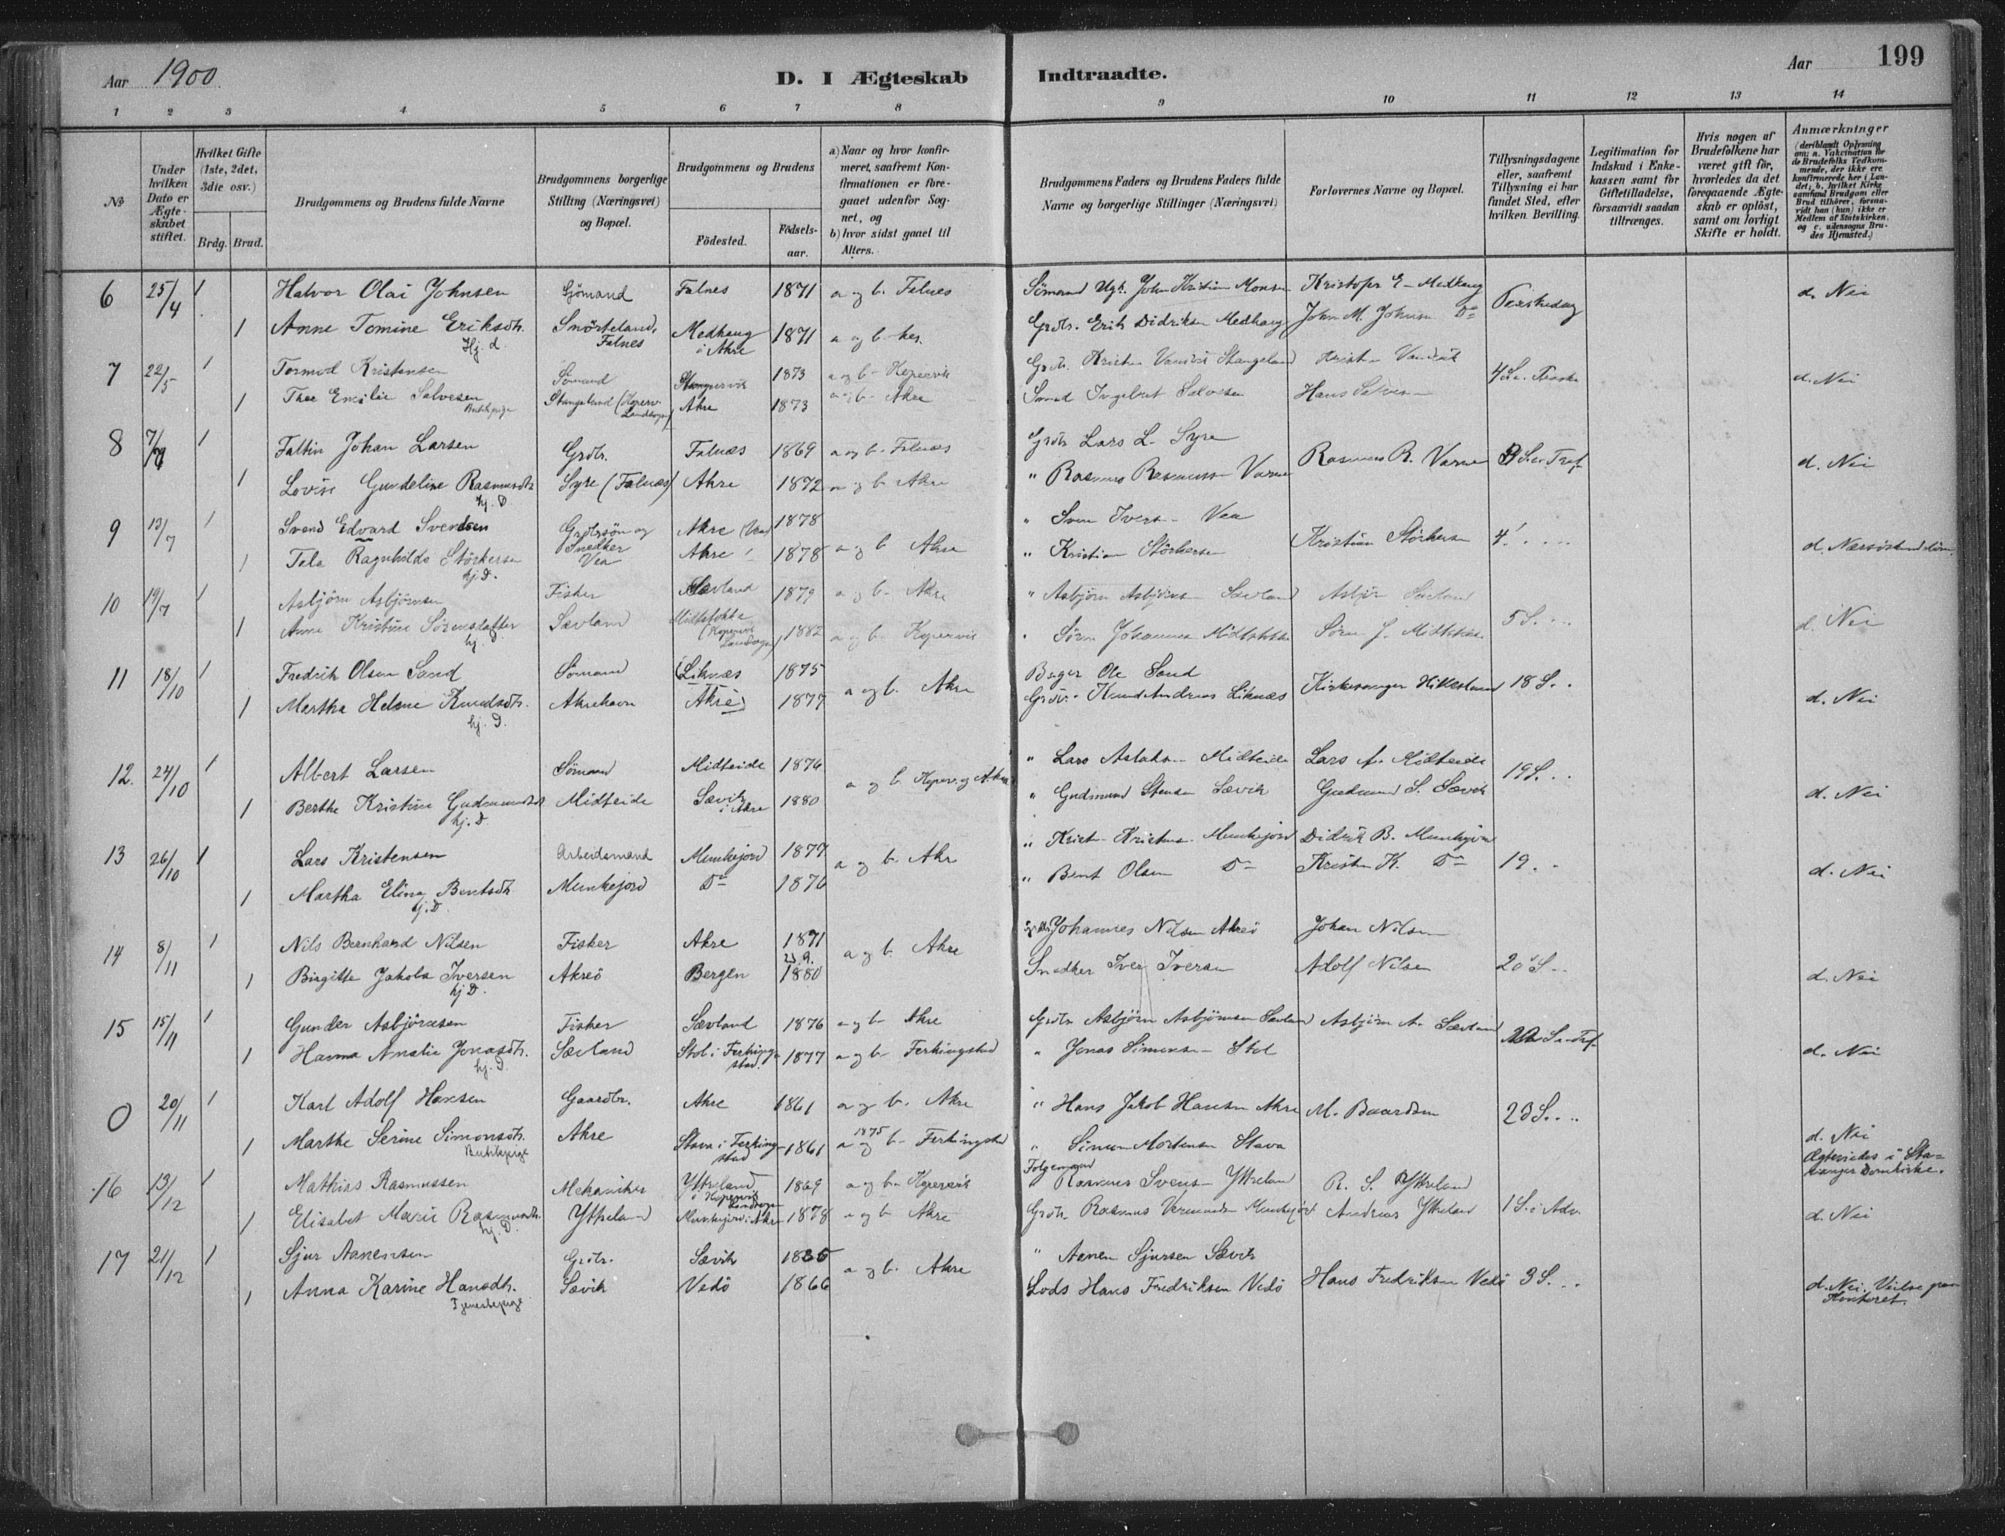 Aar 1900
D. I Ægteskab Indtraadte.
Aar 199
1 2 3 4 5 6 7 8 9 10 11 12 13 14
No
Under hvilken Dato er Ægte-skabet stiftet.
Hvilket Gifte (1ste, 2det, 3die osv.)
Brdg. Brud.
Brudgommens og Brudens fulde Navne
Brudgommens borgerlige Stilling (Næringsvei) og Bopæl.
Brudgommens og Brudens
Födested. Födsels-aar.
a) Naar og hvor konfir-meret, saafremt Kon-firmationen er fore-gaaet udenfor Sog-net, og
b) hvor sidst gaaet til Alters.
Brudgommens Faders og Brudens Faders fulde Navne og borgerlige Stillinger (Næringsvei)
Forlovernes Navne og Bopæl.
Tillysningsdagene eller, saafremt Tillysning ei har fundet Sted, efter hvilken Bevilling.
Legitimation for Indskud i Enke-kassen samt for Giftetilladelse, forsaavidt saadan tiltrænges.
Hvis nogen af Brudefolkene har været gift för, hvorledes da det foregaaende Ægte-skab er oplöst, samt om lovligt Skifte er holdt.
Anmærkninger
(deriblandt Oplysning om: a. Vakcination for de Brudefolks Vedkom-mende, der ikke ere konfirmerede her i Lan-det; b. hvilket Kirke-samfund Brudgom eller Brud tilhörer, forsaa-vidt han (hun) ikke er Medlem af Statskirken, og c. udensogns Bru-des Hjemsted.)
6 25/4 1 Halvor Olai Johnsen Sjömand Falnes 1871 a og b. Falnes Sömand Ugk. John Kristian Monsen Kristofer E. Medhaug d. Nei
1 Anne Tomine Eriksdtr. hj. d. Snörteland, Falnes Medhaug i Akre 1871 a og b. her. Grdbr. Erik Didriksen Medhaug John M. Johnsen Do Paaskedag
7 22/5 1 Tormod Kristensen Sömand 1873 a og b. Kopervik Grdb. Stangeland d. Nei
1 Thee Emilie Salvesen Butikpige Stangeland (Koperv. Landsogn) Akre 1873 a og b. Akre Ingebret Salvesen Hans 4 S.
8 7/6 1 Faltin Johan Larsen Grdbr. Falnæs 1869 a og b. Falnæs Grdbr. Lars L. Syre Rasmus R. Varne 3 S. e. Tref. d. Nei
1 Lovise Gundeline Rasmusdtr. hj. D Syre (Falnæs) Akre 1872 a og b. Akre " Rasmus Rasmussen Varne
9 13/7 1 Svend Edvard Svendsen Grdbrsön og Snedker Akre (Vea) 1878 " Sven Ivers. Vea
1 Tala Ragnhilda Störkersen hj. D. Vea Akre 1878 a og b. Akre " Kristian Störkersen Kristian Störkersen 4
10 19/7 1 Asbjörn Asbjörnsen Fisker Sævland 1879 a og b. Akre " Asbjörn Asbjörns. Sævland Asbjör Sævland
1 Anne Kristine Sörensdatter hj. D Sævland Midtstokke (Kopervik Landsogn) 1882 a og b. Kopervik " Sörn Johannes Midtstokke Sörn J. Midtstokke 5 S. d. Nei
11 18/10 1 Fredrik Olsen Sand Sömand Liknæs 1875 Bager Ole Sand
1 Martha Helene Knudsdtr. hj. D. Akrehavn Akre 1877 a og b. Akre Grdbr. Knud Andreas Liknæs Kirkesanger Hillesland 18 S. d. Nei
12. 24/10 1 Albert Larsen Sömand Midteide 1876 a og b. Koperv. og Akre " Lars Aslaks. Midteide Lars A. Midteide 19 S.
1 Berthe Kristine Gudmundsdtr hj. D Midteide Sævik i Akre 1880 " Gudmund Stensen Sævik Gudmund S. Sævik d. Nei
13 26/10 1 Lars Kristensen Arbeidsmand Munkejord 1877 a og b. Akr " Krist. Kristens. Munkejord Didrik B. Munkejord
1 Martha Elina Bentsdtr. hj. D. Munkejord Do 1876 " Bent Olsen Do Kristen K. Do 19. d. Nei
14 8/11 1 Nils Bernhard Nilsen Fisker Akre 1871 a og b. Akre Johannes Nilsen Akreö Johan Nilsen
1 Birgitte Jakoba Iversen hj D. Akreö Bergen 1880 Snedker Iver Iversen Adolf Nilsen 20 S. d. Nei
15 15/11 1 Gunder Asbjörnsen Fisker Sævland 1876 a og b. Akre Grdbr. Asbjörn Asbjörnsen Sævland Asbjörn A. Sævland
1 Hanna Amalie Jonasdtr. hj. D. Sævland Stol i Ferkingstad. 1877 a og b. Ferkingstad " Jonas Simonsen Stol S. e. Tref. d. Nei
0 20/11 1 Karl Adolf Hansen Gaardbr. Akre 1861 a og b. Akre " Hans Jakob Hansen Akre M. Baardsen 23 S.
1 Marthe Serine Simonsdtr. Butikpige Akre Stava i Ferkingstad 1861 a 1875 og b. Ferkingstad " Simon Mortensen Stava d. Nei Ægtevides i Stavanger Domkirke.
16 13/12 1 Mathias Rasmussen Mekaniker Ytreland i Kopervik Landsogn 1869 a og b. Kopervik Folgemand Rasmus Svens. Ytreland R. S. Ytreland
1 Elisabet Marie Rasmusdtr. hj. D. Ytreland Munkejord i Akre 1878 a og b. Akre Grdbr. Rasmus Munkejord Andreas Ytreland 1 S. i Adv. d. Nei
17 21/12 1 Sjur Aanensen Grdbr. Sævik 1835 a og b. Akre " Aanen Sjursen Sævik
1 Anna Karine Hansdtr. Tjenestepige Sævik Vedö 1866 Lods Hans Fredriksen Vedö Hans Fredriksen Vedö 3 S. d. Nei. Vielse paa Kontoret.